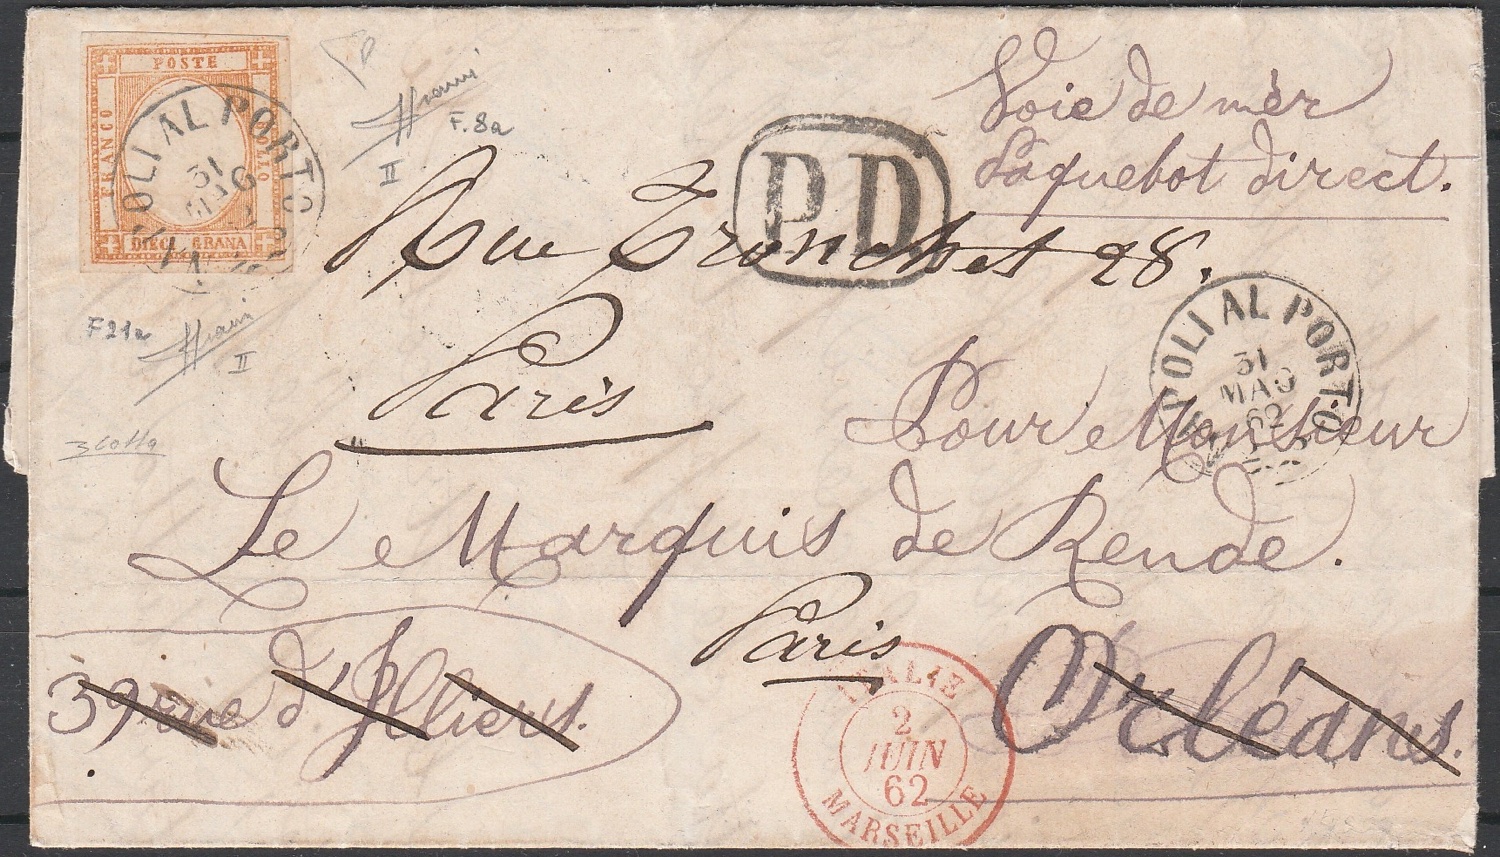 POSTE
FRANCO
BOLLO
DIECI GRANA
NAPOLI AL PORTO
31
MAG
F.8a
II
F21a
II
P.D.
Voie de mèr
Paquebot direct.
Rue Tronchet 28,
Paris
NAPOLI AL PORTO
31
MAG
62
Pour Monsieur
Le Marquis de Rende.
Paris
39 rue d'Illiers.
Orléans.
ITALIE
2
JUIN
62
MARSEILLE